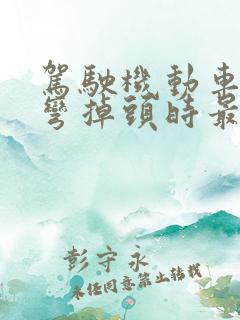 駕駛機動車
彎掉頭時最
彭守永
未任同意禁止轉載